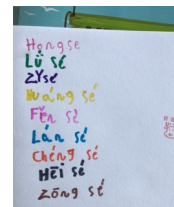 Hongse
Lǜ sé
ZYsé
Huáng sé
Fěn sè
Lán sé
Chéng sé
HEī sé
Zōng sé